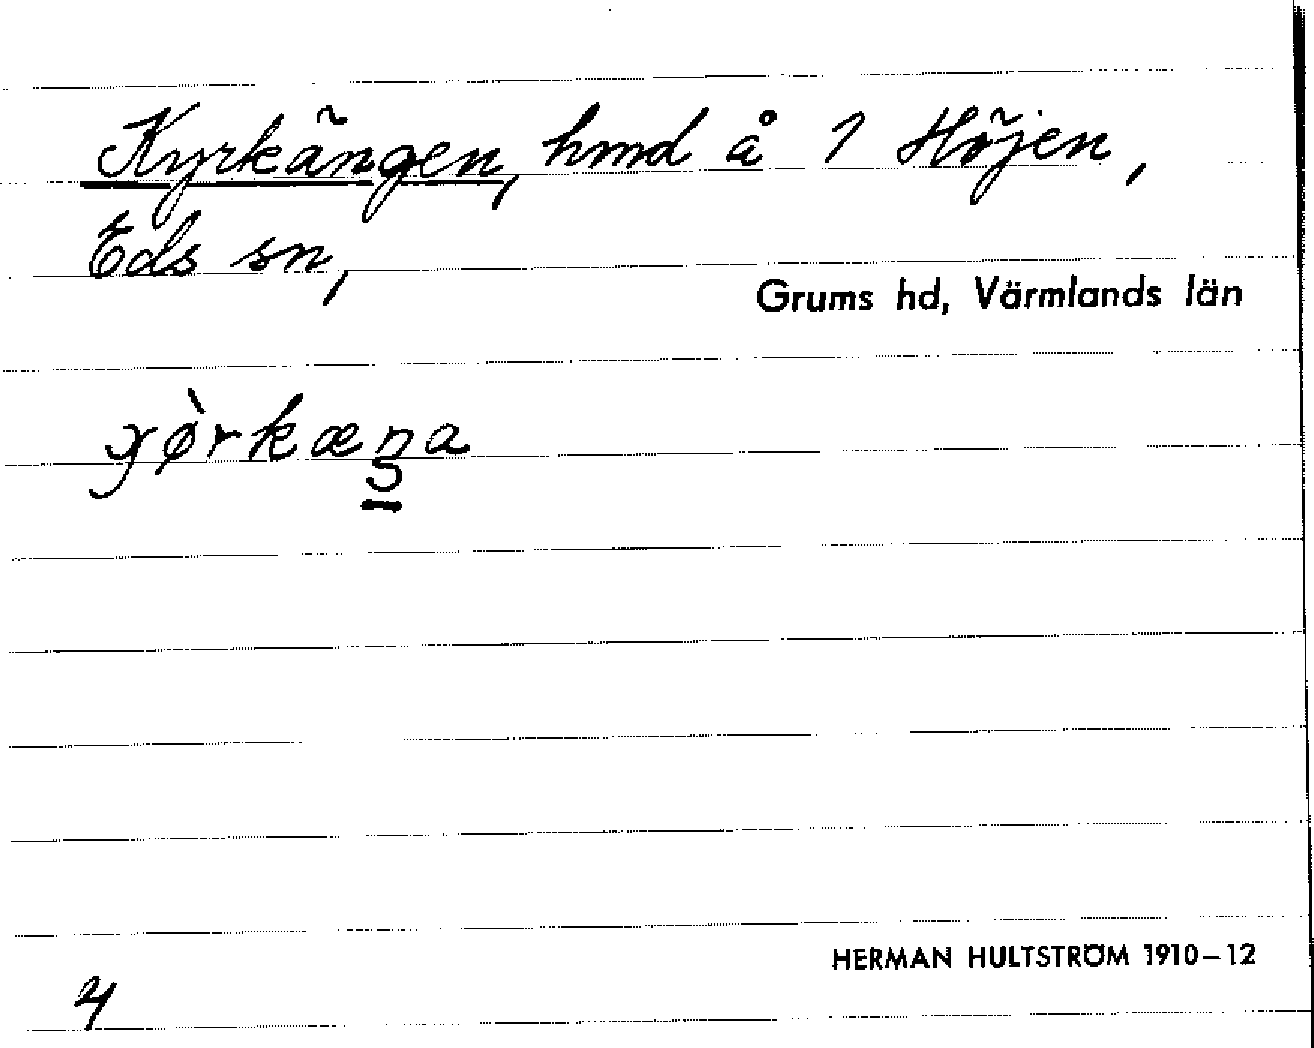 Kyrkängen, hmd å 1 Höjen,
Eds sn,
Grums hd, Värmlands län
HERMAN HULTSTRÖM 1910–12
4